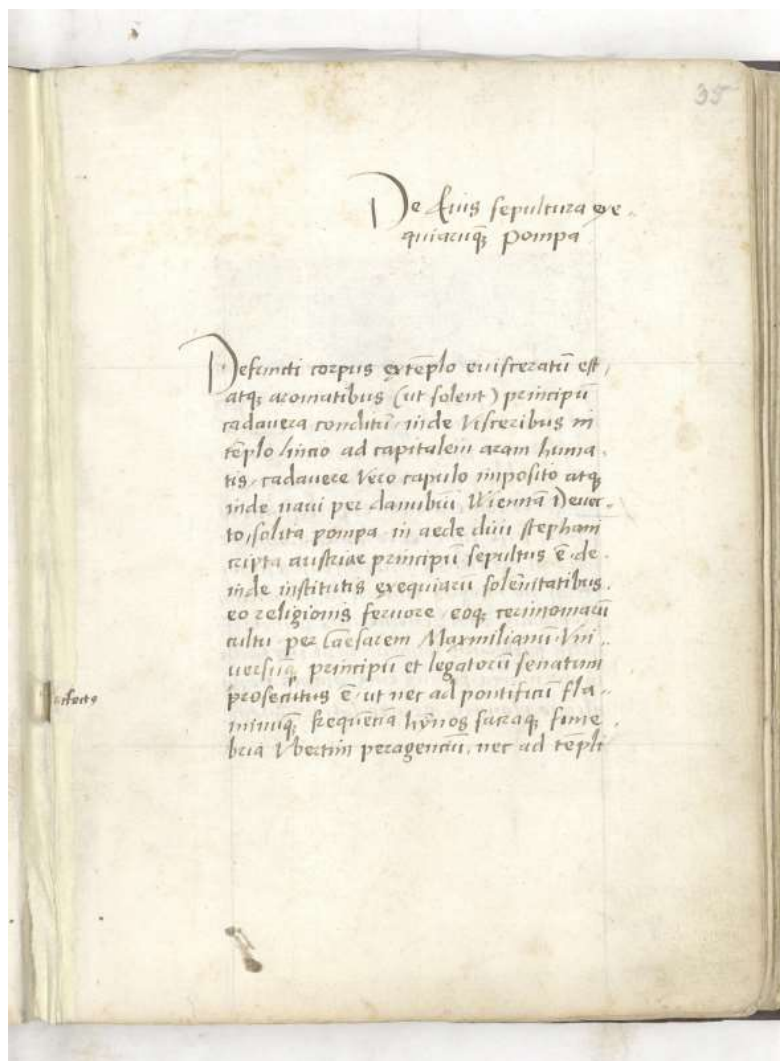 35
De Eius sepultura exe-
quiarūq; Pompa
Defuncti corpus extēplo euisceratū est,
atq; aromatibus (ut solent) principū
cadauera conditū, inde Visceribus in
tēplo lincio ad capitalem aram huma-
tis, cadauere Vero capulo imposito atq;
inde naui per danubiū Wiennā Deuec-
to, solita pompa in aede diui stephani
cripta austriae principū sepultus ē. de-
inde institutis exequiarū solēnitatibus.
eo religionis feruore, eoq; cerimoniarū
cultu per Caesarem Maxmilianū Vni-
uersūq; principū et legatorū senatum
prosecutus ē, ut nec ad pontificū fla-
minūq; frequēcia hȳnos sacraq; fune-
bria Vbertim peragenciū, nec ad tēpli